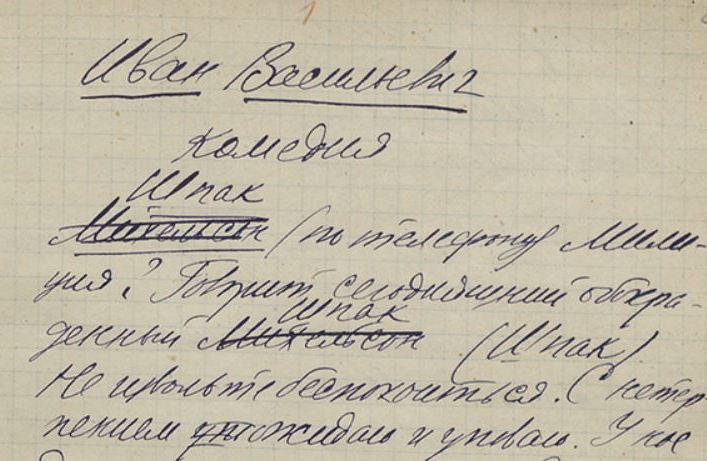 1
Иван Васильевич
комедия
Шпак
Михельсон (по телефону) Мили-
ция? Говорит сегодняшний обокра-
Шпак
денный Михельсон (Шпак)
Не извольте беспокоиться. С нетер-
пением ожидаю и уповаю. У нас